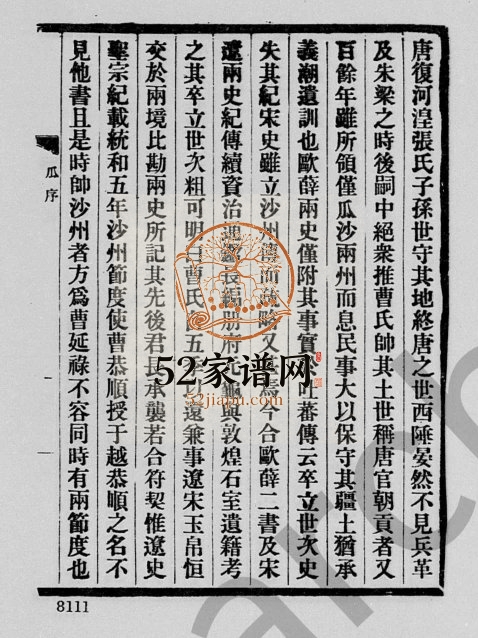 唐復河湟張氏子孫世守其地終唐之世西陲晏然不見兵革
及朱梁之時後嗣中絕衆推曹氏帥其土世稱唐官朝貢者又
百餘年雖所領僅瓜沙兩州而息民事大以保守其疆土猶承
義潮遺訓也歐薛兩史僅附其事實於吐蕃傳云卒立世次史
失其紀宋史雖立沙州傳而疏略又甚焉今合歐薛二書及宋
遼兩史紀傳續資治通鑑長編册府元龜與敦煌石室遺籍考
之其卒立世次粗可明白曹氏自五季以還兼事遼宋玉帛恒
交於兩境比勘兩史所記其先後君長承襲若合符契惟遼史
聖宗紀載統和五年沙州節度使曹恭順授于越恭順之名不
見他書且是時帥沙州者方爲曹延祿不容同時有兩節度也
瓜序
52家谱网
52jiapu.com
8111